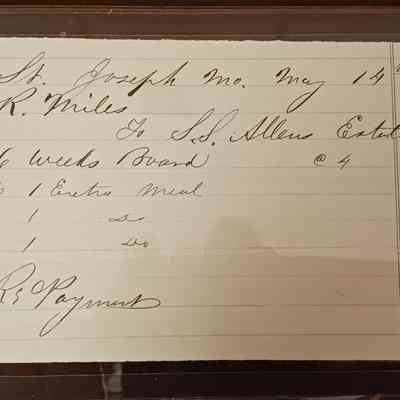 St. Joseph Mo. May 14
R. Miles
To S.S. Allens Estat
6 Weeks Board @ 4
1 Extra Meal
1 Do
1 Do
Rc Payment